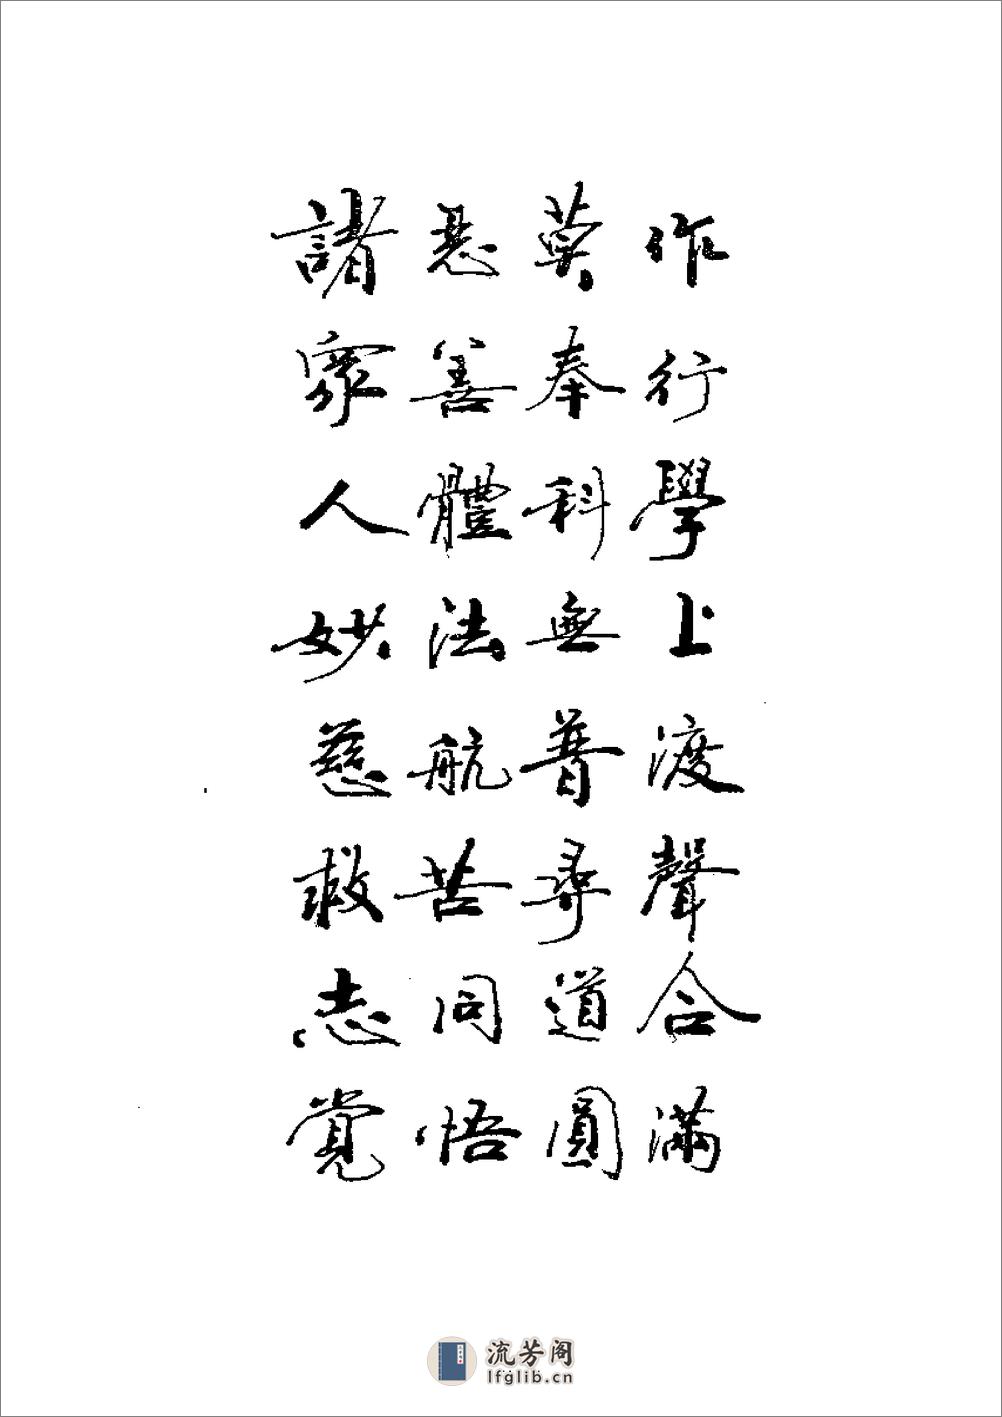 諸惡莫作
眾善奉行
人體科學
妙法無上
慈航普渡
救苦尋聲
志同道合
覺悟圓滿
流芳阁
lfglib.cn